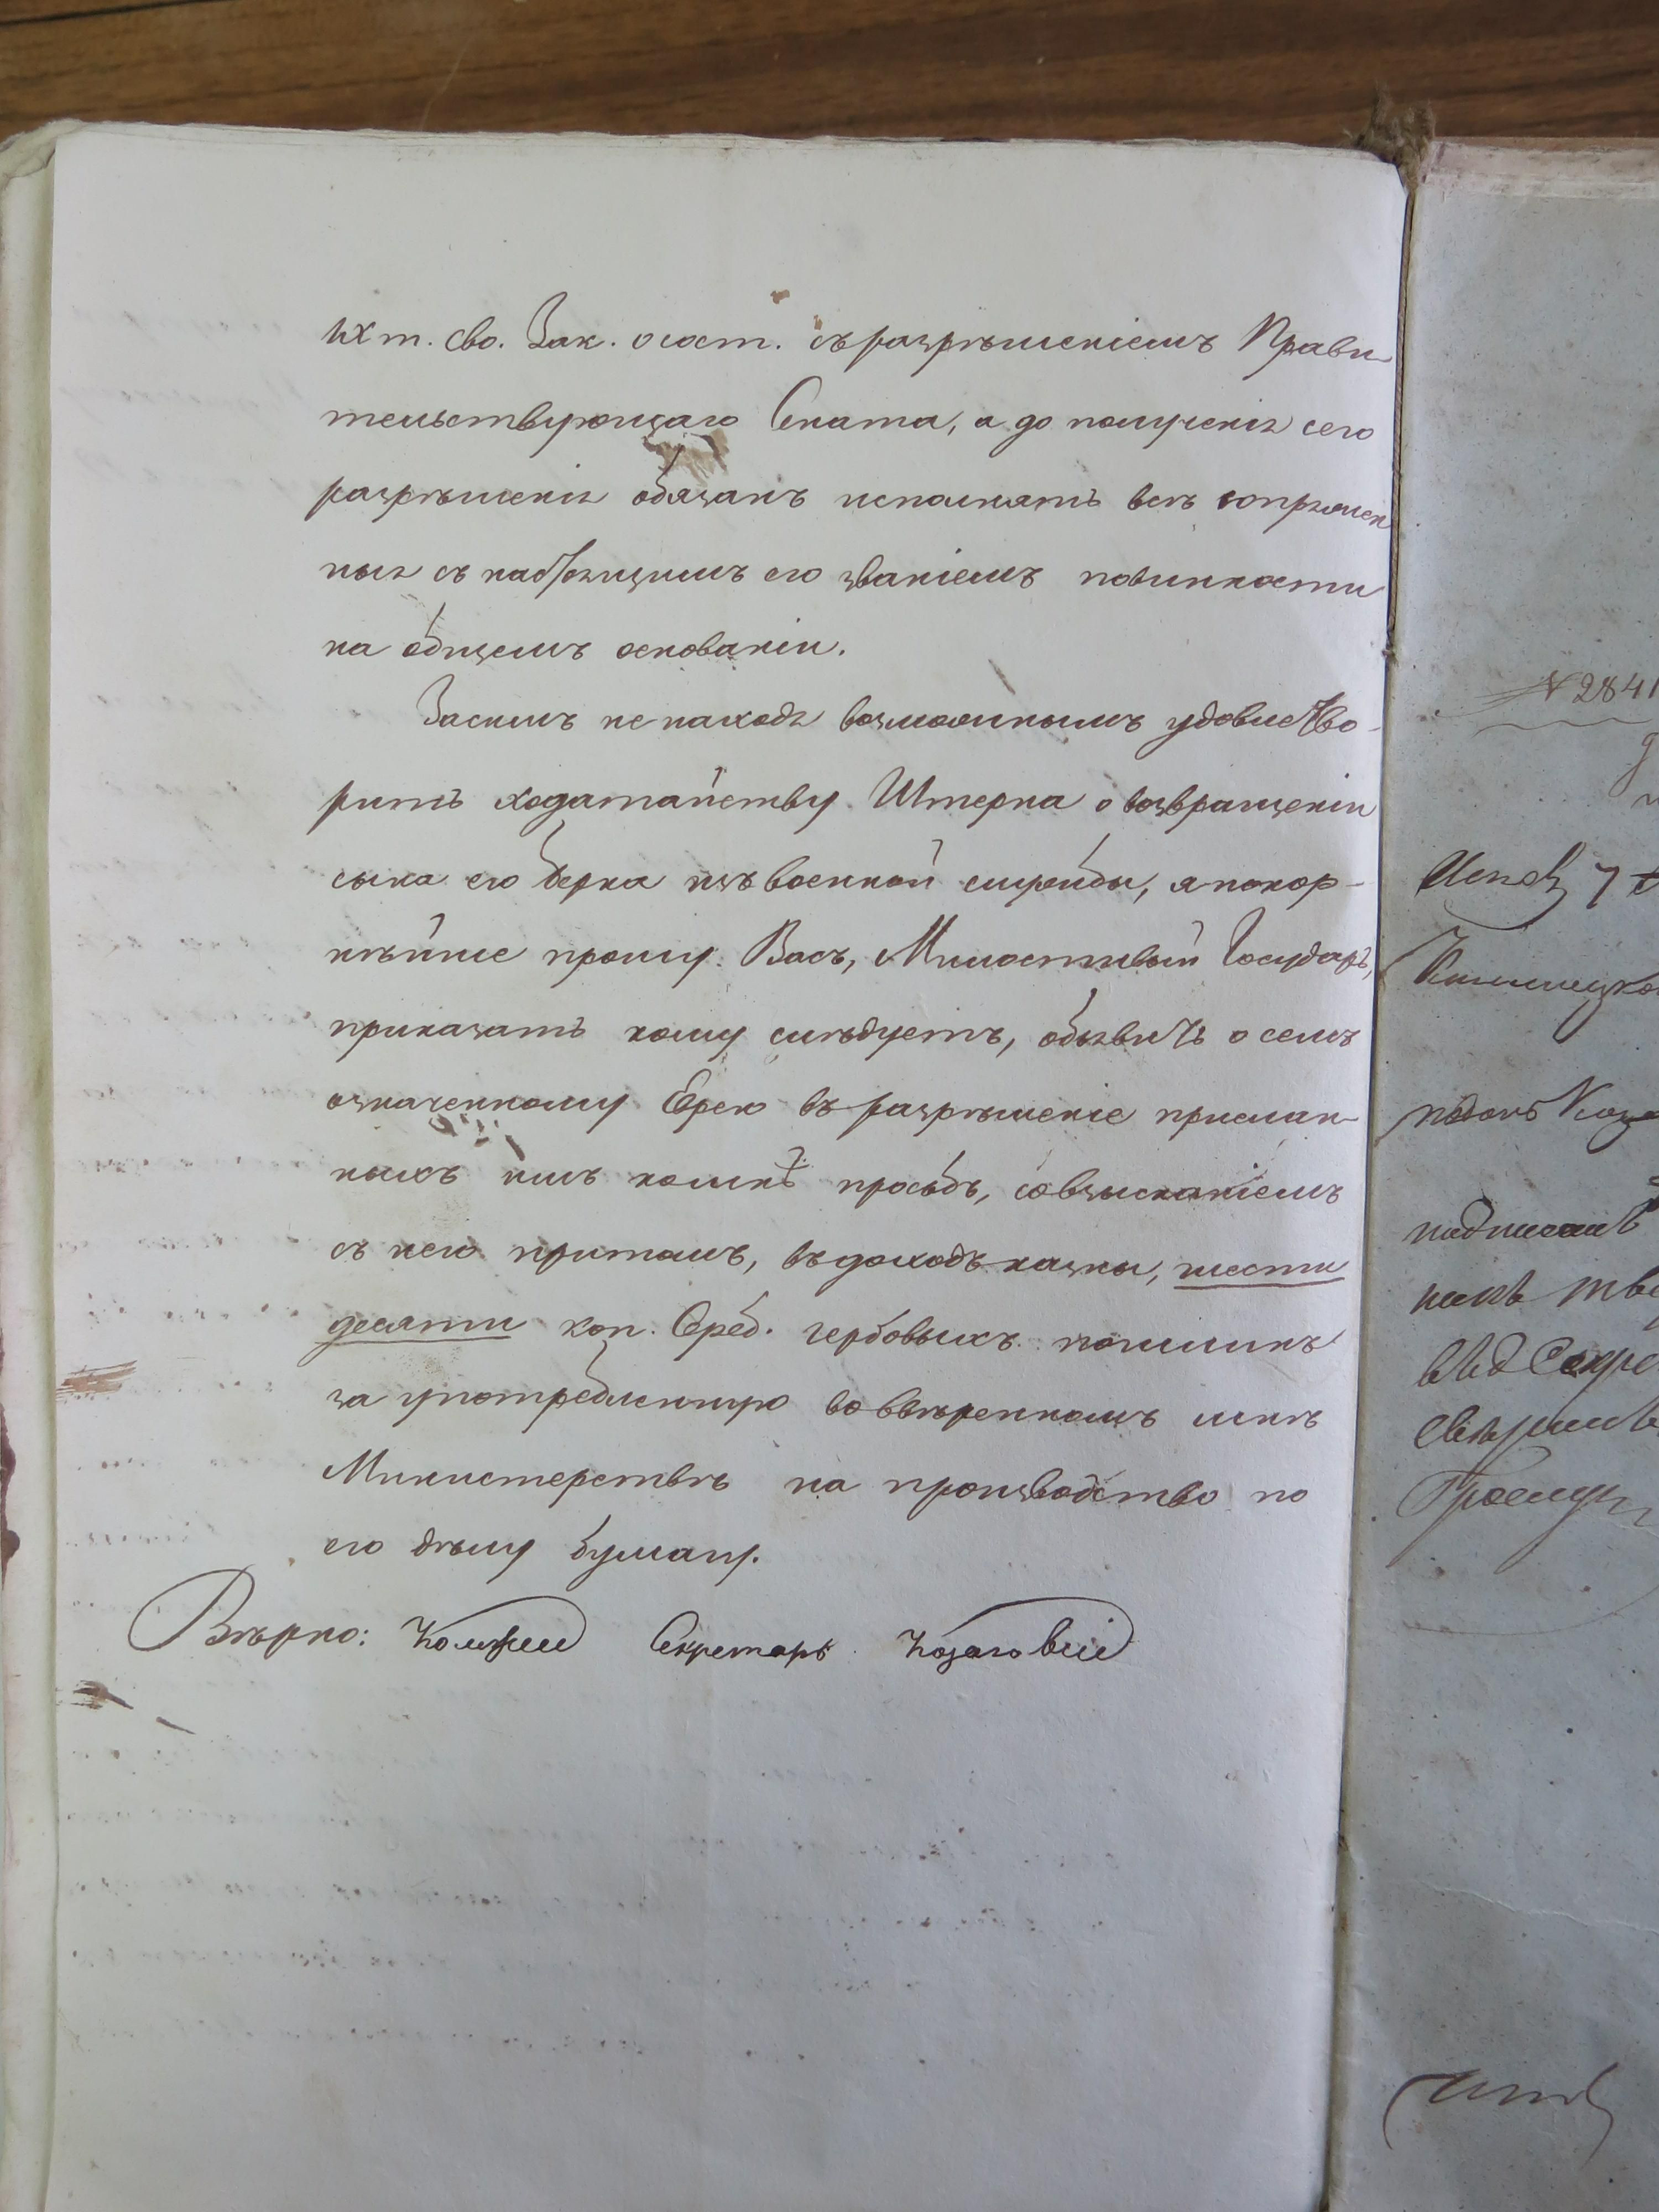 IX т. Сво. Зак. о сост. съ разрѣшеніемъ Прави-
тельствующаго Сената, а до полученія сего
разрѣшенія обязанъ исполнять всѣ сопряжен
ныя съ настоящимъ его званіемъ повинности
на общемъ основаніи.
Засимъ не находя возможнымъ удовлетво-
рить ходатайству Штерна о возвращеніи
сына его Берка изъ военной службы, я покор-
нѣйше прошу Васъ, Милостивый Государь,
приказать кому слѣдуетъ, объявить о семъ
означенному Еврею въ разрѣшеніе прислан-
ныхъ имъ ко мнѣ просьбъ, со взысканіемъ
съ него притомъ, въ доходъ казны, шести
десяти коп. Сереб. гербовыхъ пошлинъ
за употребленную во ввѣренномъ мнѣ
Министерствѣ на производство по
его дѣлу бумагу.
Вѣрно: Секретарь
№ 2841